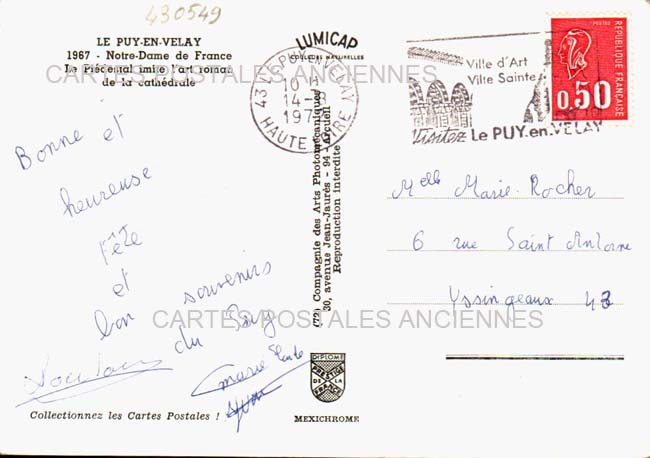 430549
LE PUY-EN-VELAY
1967 - Notre-Dame de France
Le Piédestal imite l'art roman
de la cathédrale
LUMICAP
COULEURS NATURELLES
43 LE PUY-EN-VELAY
10 H
14-8
197
HAUTE LOIRE
Ville d'Art
Ville Sainte
Visitez Le PUY.en.VELAY
POSTES
RÉPUBLIQUE FRANÇAISE
0,50
CARTES POSTALES ANCIENNES
Bonne et
heureuse
fête
et
bon souvenirs
du Puy
Marie
(72) Compagnie des Arts Photomécaniques
30, avenue Jean-Jaurès - 94 - Arcueil
Reproduction interdite
Melle Marie-Rocher
6 rue Saint Antoine
Yssingeaux 43
CARTES POSTALES ANCIENNES
DIPLOME
PRESTIGE
DE LA
FRANCE
Collectionnez les Cartes Postales !
MEXICHROME